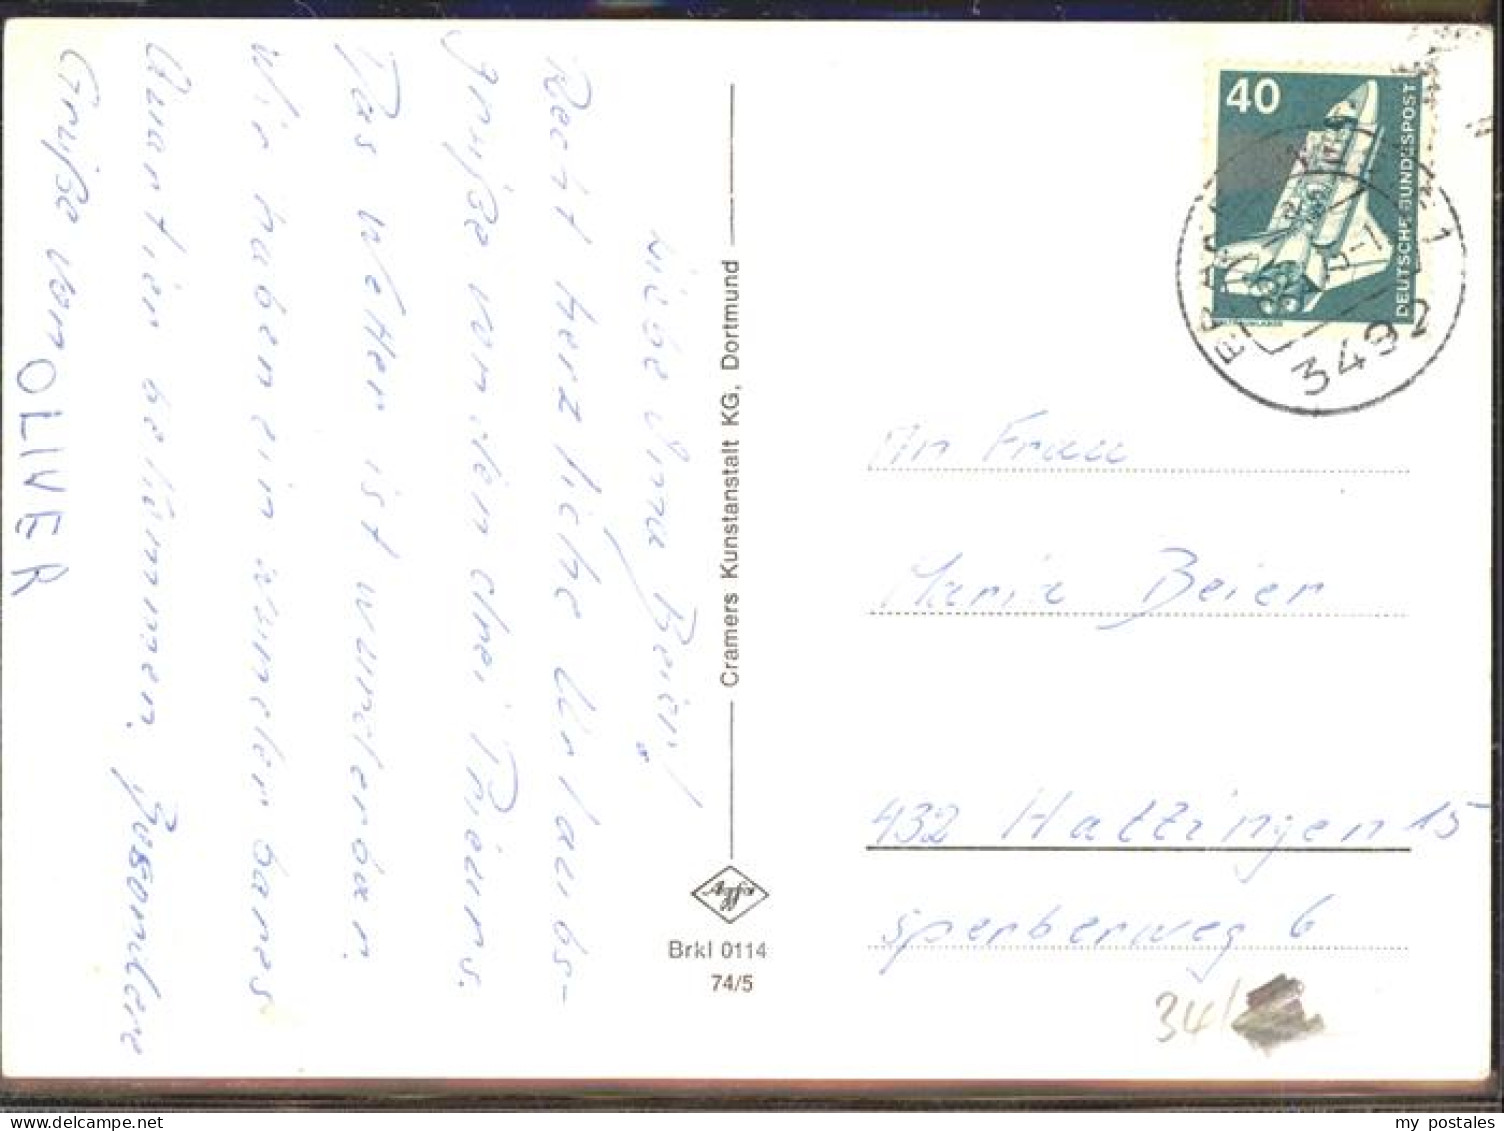 Liebe Oma Beier!
Recht herzliche Urlaubs-
grüße von den drei Thieurs.
Das Wetter ist wunderbar.
Wir haben ein wunderbares
Quartier bekommen. Besondere
Grüße von OLIVER
Cramers Kunstanstalt KG, Dortmund
Agfa
Brkl 0114
74/5
40
DEUTSCHE BUNDESPOST
3492
1
An Frau
Maria Beier
432 Hattingen 15
Sperberweg 6
34/
my postales